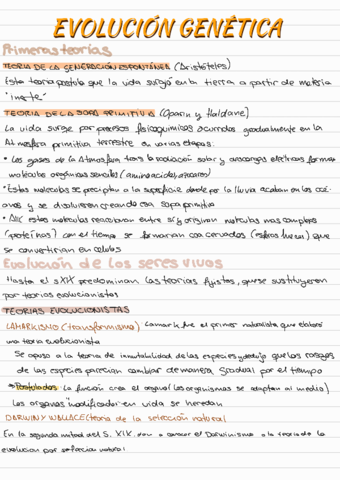 EVOLUCIÓN GENÉTICA
Primeras teorías
TEORIA DE LA GENERACIÓN ESPONTÁNEA (Aristóteles)
Esta teoría postula que la vida surgió en la tierra a partir de materia
"inerte"
TEORIA DE LA SOPA PRIMITIVA (Oparin y Haldane)
La vida surge por procesos fisicoquímicos ocurridos gradualmente en la
Atmósfera primitiva terrestre en varias etapas:
• Los gases de la Atmosfera tras la radiación solar y descargas electricas forman
moléculas orgánicas sencillas (aminoácidos, azucares)
• Estas moléculas se precipitan a la superficie donde por la lluvia acaban en los océ-
anos y se disolvieron creando esa sopa primitiva
• Allí estas moléculas reaccionan entre sí y originan moléculas mas complejas
(proteínas) con el tiempo se formarían coacervados (esferas huecas) que
se convertirían en células
Evolución de los seres vivos
Hasta el s.XIX predominan las teorías fijistas, que se sustituyeron
por teorías evolucionistas
TEORIAS EVOLUCIONISTAS
LAMARKISMO (transformismo) Lamark fue el primer naturalista que elaboró
una teoría evolucionista
Se opuso a la teoría de inmutabilidad de las especies y dedujo que los rasgos
de las especies parecian cambiar de manera gradual por el tiempo
Postulados La función crea el organo (los organismos se adaptan al medio)
Los organos "modificados" en vida se heredan
DARWIN Y WALLACE (teoría de la selección natural)
En la segunda mitad del S. XIX, dan a conocer el Darwinismo o la teoría de la
evolucion por seleccion natural